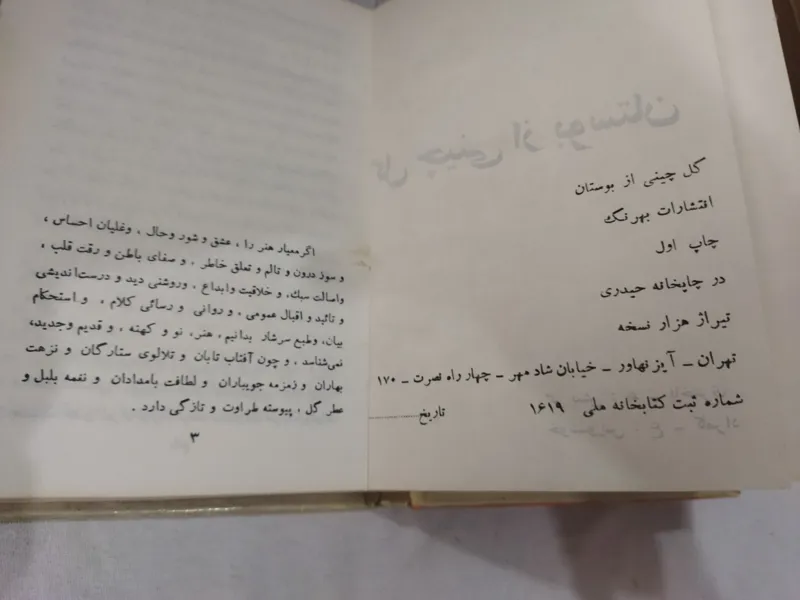 گل چینی از بوستان
انتشارات بهرنگ
چاپ اول
در چاپخانه حیدری
تیراژ هزار نسخه
تهران - آیزنهاور - خیابان شادمهر - چهار راه نصرت - ۱۷۰
شماره ثبت کتابخانه ملی ۱۶۱۹ تاریخ
اگر معیار هنر را ، عشق و شور وحال ، وغلیان احساس ،
و سوز درون و تالم و تعلق خاطر ، و صفای باطن و رقت قلب ،
واصالت سبك، و خلاقیت وابداع ، وروشنی دید و درست‌اندیشی
و تائید و اقبال عمومی ، و روانی و رسائی کلام ، و استحکام
بیان، وطبع سرشار بدانیم ، هنر، نو و کهنه ، و قدیم وجدید،
نمی‌شناسد . و چون آفتاب تابان و تلالوی ستارگان و نزهت
بهاران و زمزمه جویباران و لطافت بامدادان و نغمه بلبل و
عطر گل ، پیوسته طراوت و تازگی دارد .
۳